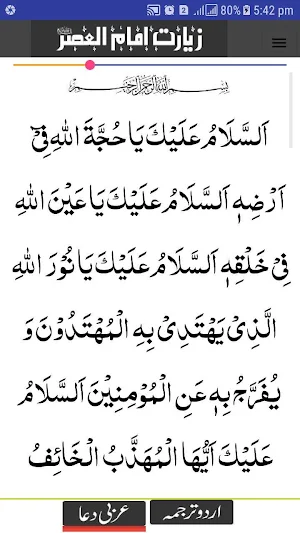 80% 5:42 pm
زیارت امام العصر
بسم اللہ الرحمن الرحیم
اَلسَّلَامُ عَلَيْكَ يَا حُجَّةَ اللهِ فِىْ
اَرْضِهٖ اَلسَّلَامُ عَلَيْكَ يَا عَيْنَ اللهِ
فِىْ خَلْقِهٖ اَلسَّلَامُ عَلَيْكَ يَا نُوْرَ اللهِ
الَّذِىْ يَهْتَدِىْ بِهِ الْمُهْتَدُوْنَ وَ
يُفَرَّجُ بِهٖ عَنِ الْمُوْمِنِيْنَ اَلسَّلَامُ
عَلَيْكَ اَيُّهَا الْمُهَذَّبُ الْخَائِفُ
اردو ترجمہ
عربی دعا